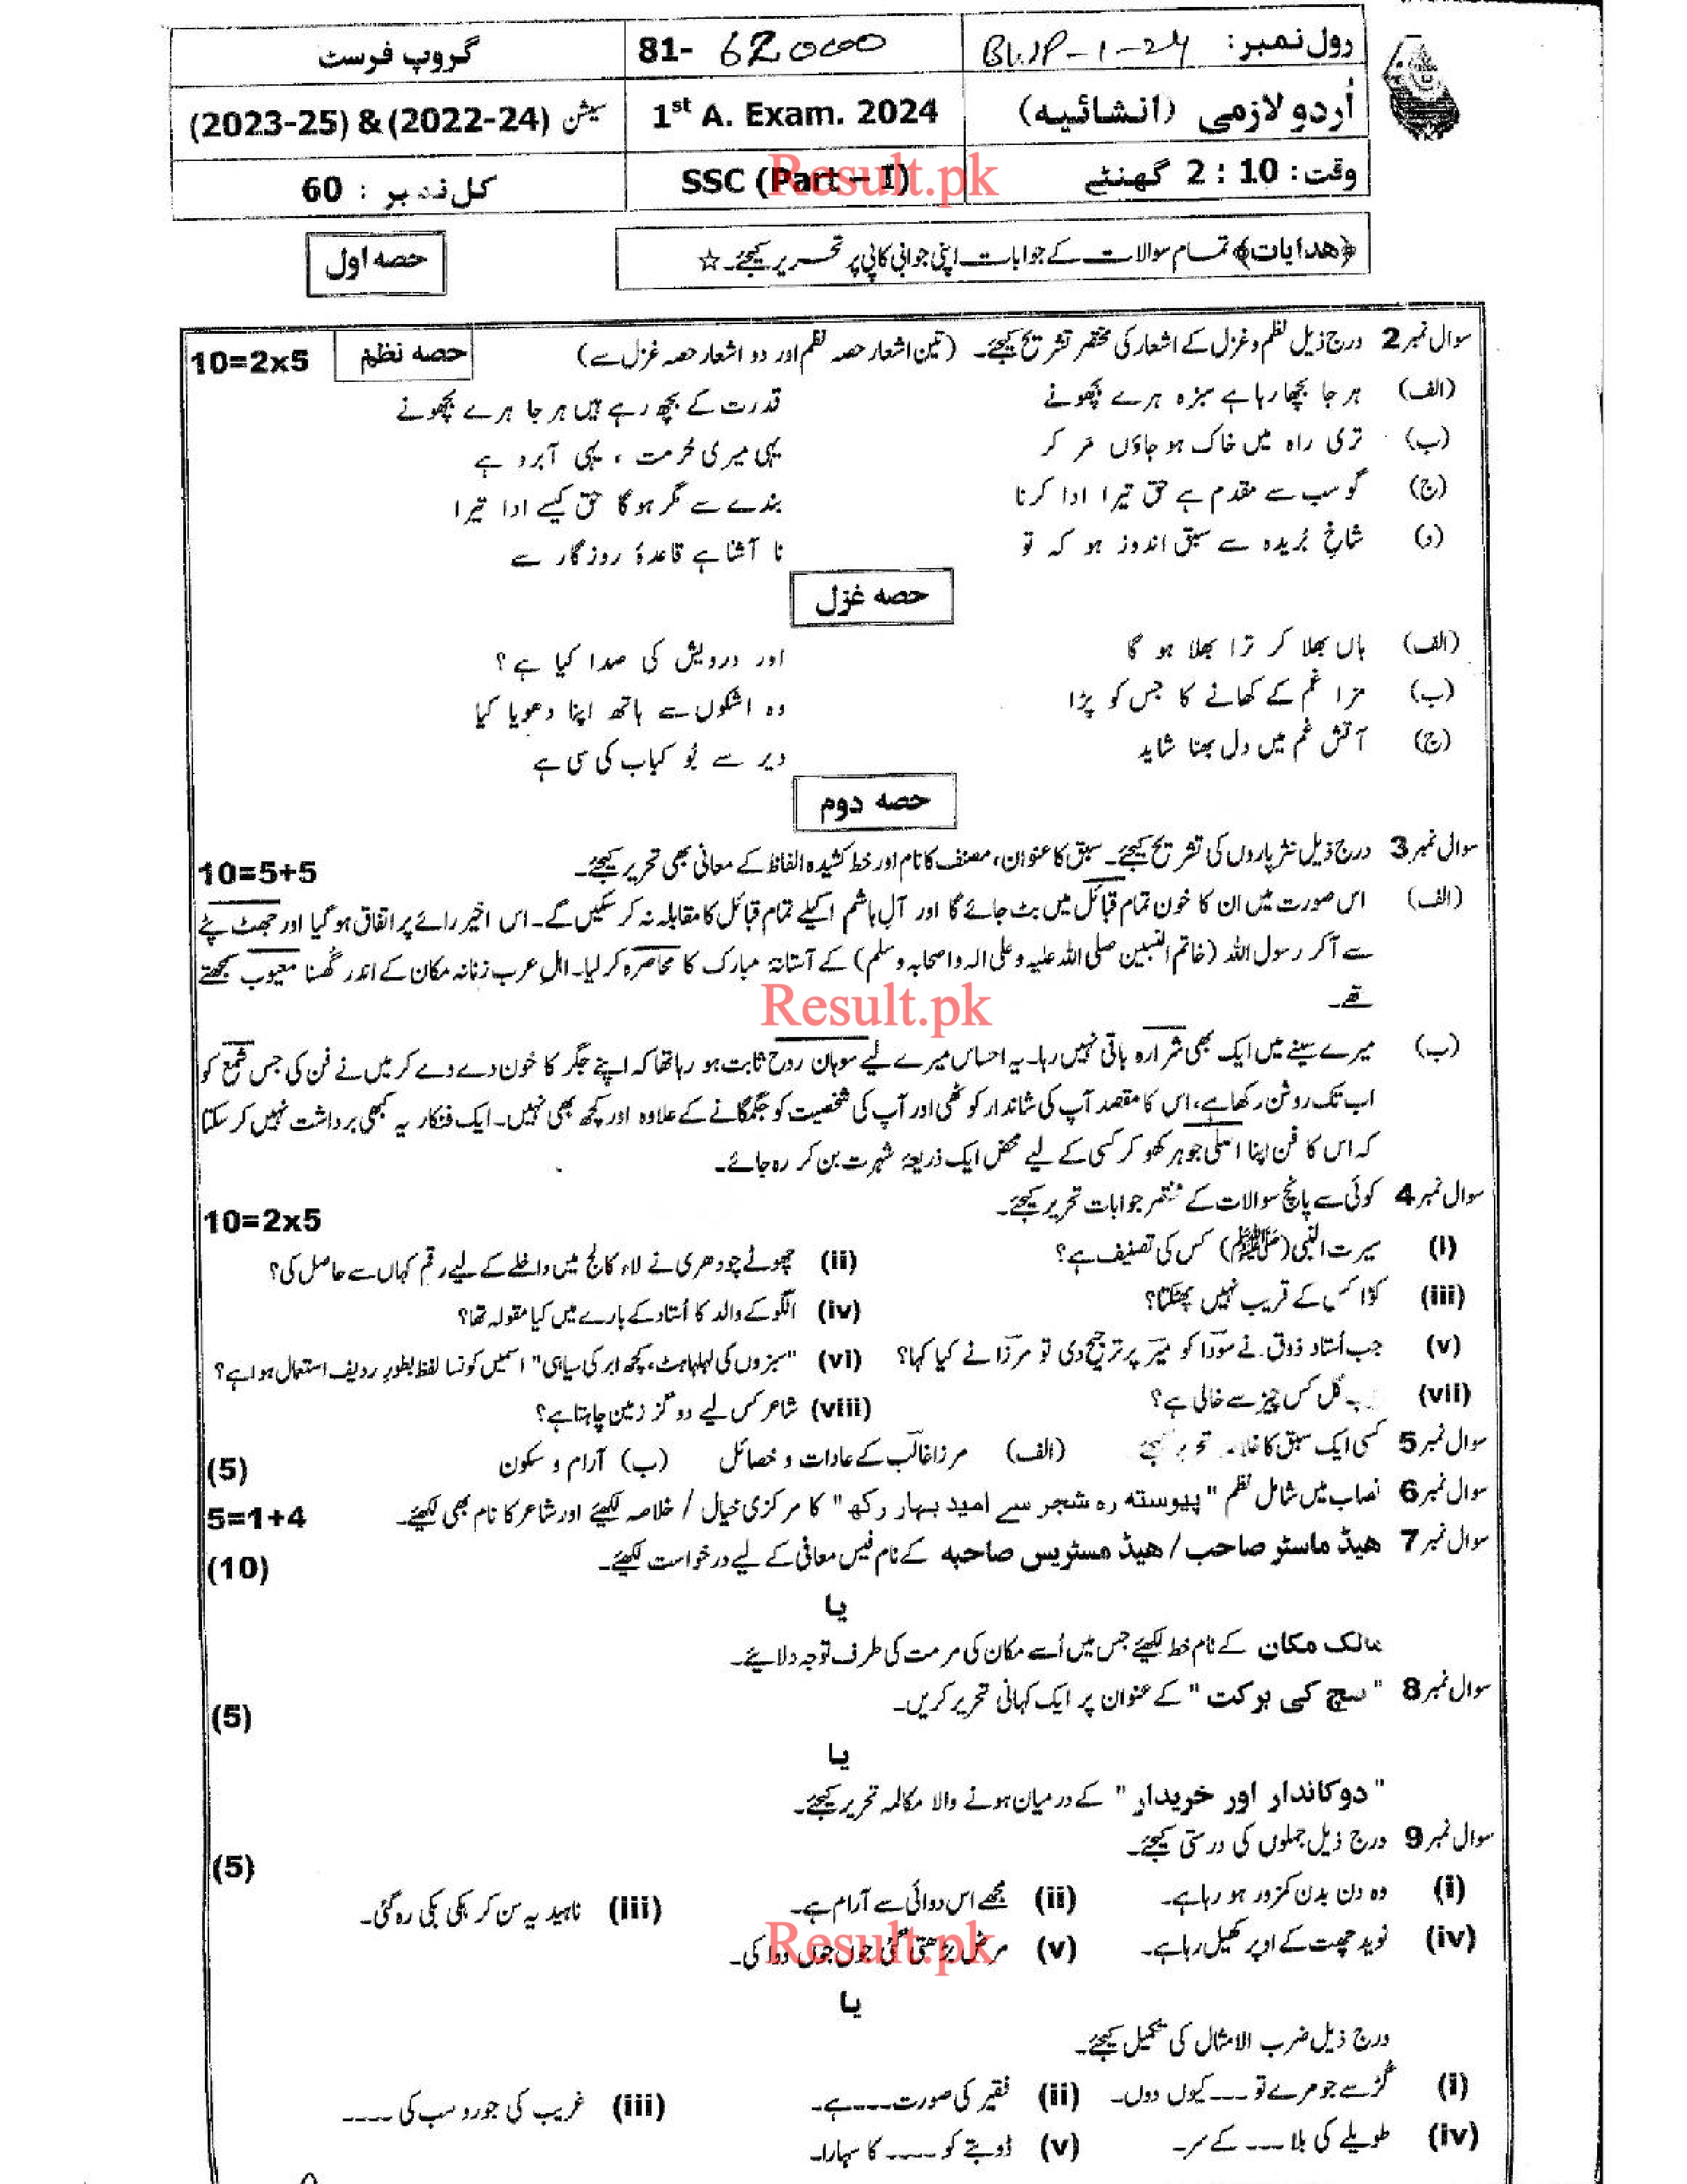 رول نمبر: BWP-1-24
81- 62000
گروپ فرسٹ
اُردو لازمی (انشائیہ)
1st A. Exam. 2024
سیشن (2022-24) & (2023-25)
وقت: 2 : 10 گھنٹے
SSC (Part – I)
کل نمبر : 60
Result.pk
﴿هدایات﴾ تمام سوالات کے جوابات اپنی جوابی کاپی پر تحریر کیجئے۔ ☆
حصہ اول
سوال نمبر 2 درج ذیل نظم و غزل کے اشعار کی مختصر تشریح کیجئے۔ (تین اشعار حصہ نظم اور دو اشعار حصہ غزل سے) حصہ نظم 10=2x5
(الف) ہر جا بچھا رہا ہے سبزہ ہرے بچھونے قدرت کے بچھ رہے ہیں ہر جا ہرے بچھونے
(ب) تری راہ میں خاک ہو جاؤں مَر کر یہی میری حُرمت ، یہی آبرو ہے
(ج) گو سب سے مقدم ہے حق تیرا ادا کرنا بندے سے مگر ہو گا حق کیسے ادا تیرا
(د) شاخِ بُریدہ سے سبق اندوز ہو کہ تو نا آشنا ہے قاعدۂ روزگار سے
حصہ غزل
(الف) ہاں بھلا کر ترا بھلا ہو گا اور درویش کی صدا کیا ہے؟
(ب) مزا غم کے کھانے کا جس کو پڑا وہ اشکوں سے ہاتھ اپنا دھویا کیا
(ج) آتش غم میں دل بھنا شاید دیر سے بُو کباب کی سی ہے
حصہ دوم
سوال نمبر 3 درج ذیل نثر پاروں کی تشریح کیجئے۔ سبق کا عنوان، مصنف کا نام اور خط کشیدہ الفاظ کے معانی بھی تحریر کیجئے۔ 10=5+5
(الف) اس صورت میں ان کا خون تمام قبائل میں بٹ جائے گا اور آلِ ہاشم اکیلے تمام قبائل کا مقابلہ نہ کر سکیں گے۔ اس اخیر رائے پر اتفاق ہو گیا اور جھٹ پٹے
سے آ کر رسول اللہ (خاتم النبیین صلی اللہ علیہ وعلی الہ واصحابہ وسلم) کے آستانۂ مبارک کا محاصرہ کر لیا۔ اہلِ عرب زنانہ مکان کے اندر گھسنا معیوب سمجھتے
تھے۔
Result.pk
(ب) میرے سینے میں ایک بھی شرارہ باقی نہیں رہا۔ یہ احساس میرے لیے سوہان روح ثابت ہو رہا تھا کہ اپنے جگر کا خون دے دے کر میں نے فن کی جس شمع کو
اب تک روشن رکھا ہے، اس کا مقصد آپ کی شاندار کوٹھی اور آپ کی شخصیت کو جگمگانے کے علاوہ اور کچھ بھی نہیں۔ ایک فنکار یہ کبھی برداشت نہیں کر سکتا
کہ اس کا فن اپنا اصلی جوہر کھو کر کسی کے لیے محض ایک ذریعۂ شہرت بن کر رہ جائے۔
سوال نمبر 4 کوئی سے پانچ سوالات کے مختصر جوابات تحریر کیجئے۔ 10=2x5
(i) سیرت النبی (ﷺ) کس کی تصنیف ہے؟ (ii) چھوٹے چودھری نے لاء کالج میں داخلے کے لیے رقم کہاں سے حاصل کی؟
(iii) کوّا کس کے قریب نہیں پھٹکتا؟ (iv) الگو کے والد کا اُستاد کے بارے میں کیا مقولہ تھا؟
(v) جب اُستاد ذوق نے سودا کو میر پر ترجیح دی تو مرزا نے کیا کہا؟ (vi) "سبزوں کی لہلہاہٹ، کچھ ابر کی سیاہی" اسمیں کونسا لفظ بطورِ ردیف استعمال ہوا ہے؟
(vii) گل کس چیز سے خالی ہے؟ (viii) شاعر کس لیے دو گز زمین چاہتا ہے؟
سوال نمبر 5 کسی ایک سبق کا خلاصہ تحریر کیجئے (الف) مرزا غالب کے عادات و خصائل (ب) آرام و سکون (5)
سوال نمبر 6 نصاب میں شامل نظم "پیوستہ رہ شجر سے امید بہار رکھ" کا مرکزی خیال / خلاصہ لکھئے اور شاعر کا نام بھی لکھئے۔ 5=1+4
سوال نمبر 7 ھیڈ ماسٹر صاحب / ھیڈ مسٹریس صاحبہ کے نام فیس معافی کے لیے درخواست لکھئے۔ (10)
یا
مالک مکان کے نام خط لکھئے جس میں اُسے مکان کی مرمت کی طرف توجہ دلایئے۔
سوال نمبر 8 "سچ کی برکت" کے عنوان پر ایک کہانی تحریر کریں۔ (5)
یا
"دوکاندار اور خریدار" کے درمیان ہونے والا مکالمہ تحریر کیجئے۔
سوال نمبر 9 درج ذیل جملوں کی درستی کیجئے۔ (5)
(i) وہ دن بدن کمزور ہو رہا ہے۔ (ii) مجھے اس دوائی سے آرام ہے۔ (iii) ناہید یہ سن کر ہکی بکی رہ گئی۔
(iv) نوید چھت کے اوپر کھیل رہا ہے۔ (v) مرض بڑھتی گئی جوں جوں دوا کی۔
Result.pk
یا
درج ذیل ضرب الامثال کی تکمیل کیجئے۔
(i) گڑ سے جو مرے تو ۔۔۔ کیوں دوں۔ (ii) فقیر کی صورت ۔۔۔۔ ہے۔ (iii) غریب کی جورو سب کی ۔۔۔۔
(iv) طویلے کی بلا ۔۔۔ کے سر۔ (v) ڈوبتے کو ۔۔۔۔ کا سہارا۔